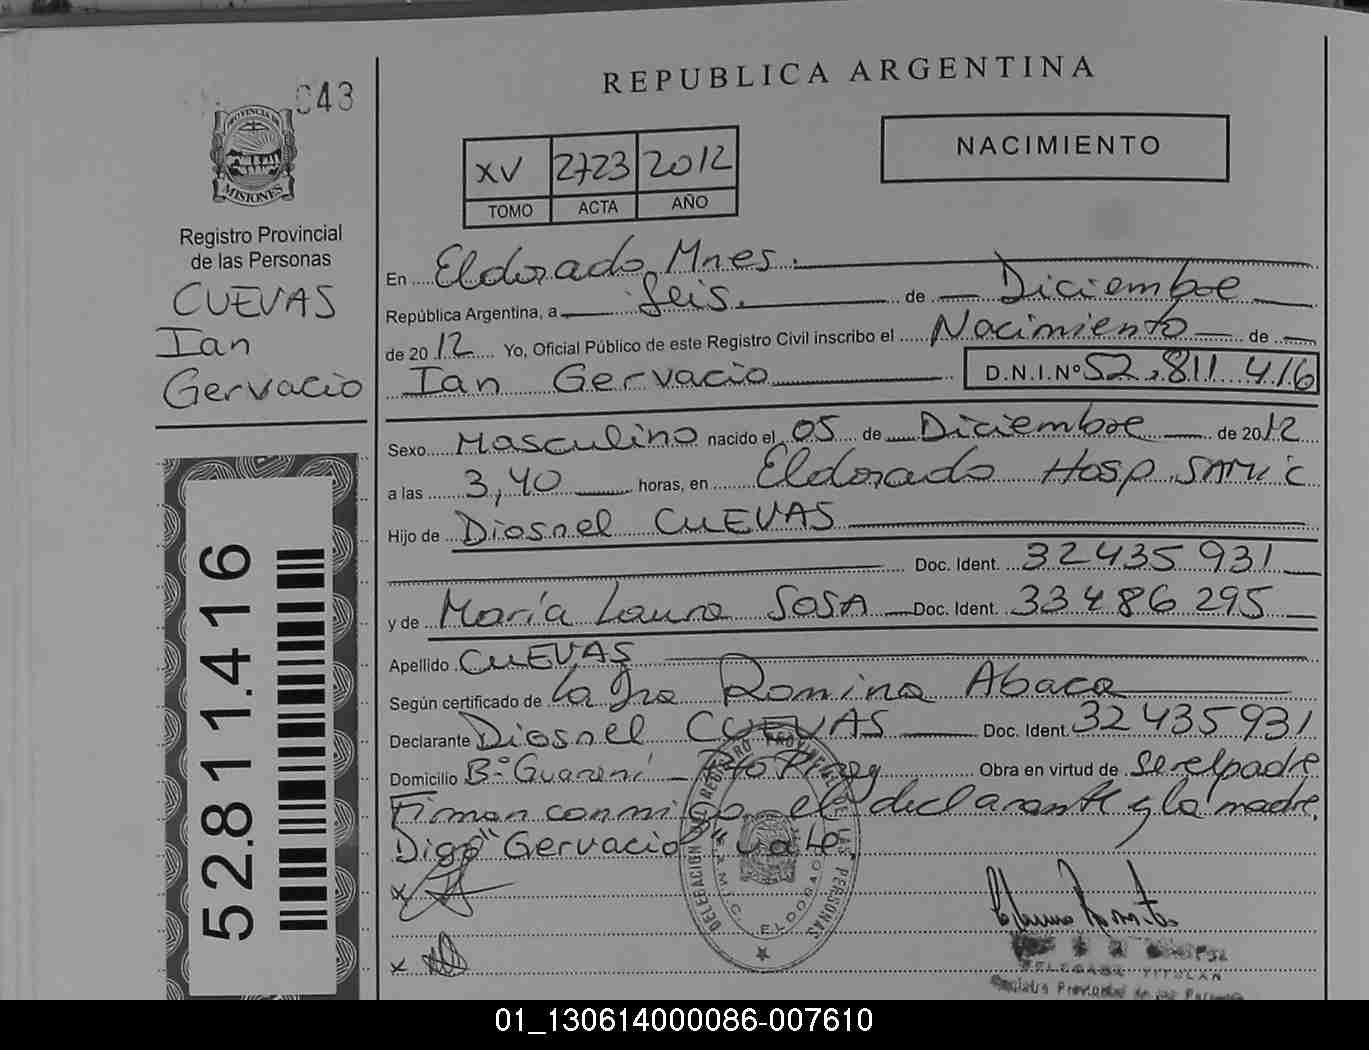 REPUBLICA ARGENTINA
043
PROVINCIA DE
MISIONES
NACIMIENTO
XV 2723 2012
TOMO ACTA AÑO
Registro Provincial
de las Personas
CUEVAS
Ian
Gervacio
En Eldorado Mnes.
República Argentina, a Seis. de Diciembre
de 2012 Yo, Oficial Público de este Registro Civil inscribo el Nacimiento de
Ian Gervacio D.N.I.Nº 52.811.416
Sexo Masculino nacido el 05 de Diciembre de 2012
a las 3,40 horas, en Eldorado Hosp. SAMIC
Hijo de Diosnel CUEVAS
Doc. Ident. 32435931
y de María Laura SOSA Doc. Ident. 33486295
Apellido CUEVAS
Según certificado de la Dra Romina Abaca
Declarante Diosnel CUEVAS Doc. Ident. 32435931
Domicilio Bº Guaraní - Pto Piray Obra en virtud de ser el padre
Firman conmigo el declarante y la madre.
Digo "Gervacio" vale.
x
x
DELEGACION REGISTRO PROVINCIAL DE LAS PERSONAS
S.A.M.I.C. ELDORADO
DELEGADA TITULAR
Registro Provincial de las Personas
52.811.416
01_130614000086-007610